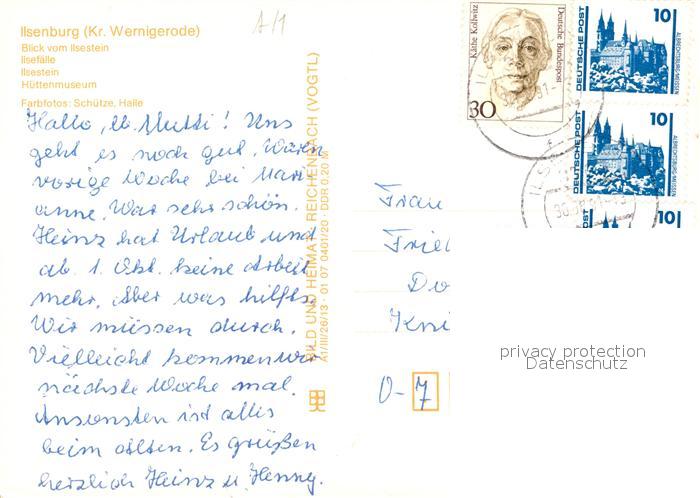 Ilsenburg (Kr. Wernigerode)
Blick vom Ilsestein
Ilsefälle
Ilsestein
Hüttenmuseum
Farbfotos: Schütze, Halle
A/1
Hallo, lb. Mutti! Uns
geht es noch gut. Waren
vorige Woche bei Mari
anne. War sehr schön.
Heinz hat Urlaub und
ab 1. Okt. keine Arbeit
mehr. Aber was hilfts.
Wir müssen durch.
Vielleicht kommen wir
nächste Woche mal.
Ansonsten ist alles
beim alten. Es grüßen
herzlich Heinz u. Henny.
BILD UND HEIMAT REICHENBACH (VOGTL)
A1/III/26/13 · 01 07 0401/20 · DDR 0,20 M
Käthe Kollwitz
Deutsche Bundespost
30
DEUTSCHE POST
10
ALBRECHTSBURG MEISSEN
DEUTSCHE POST
10
ALBRECHTSBURG MEISSEN
POST
10
Frau
O-7
privacy protection
Datenschutz